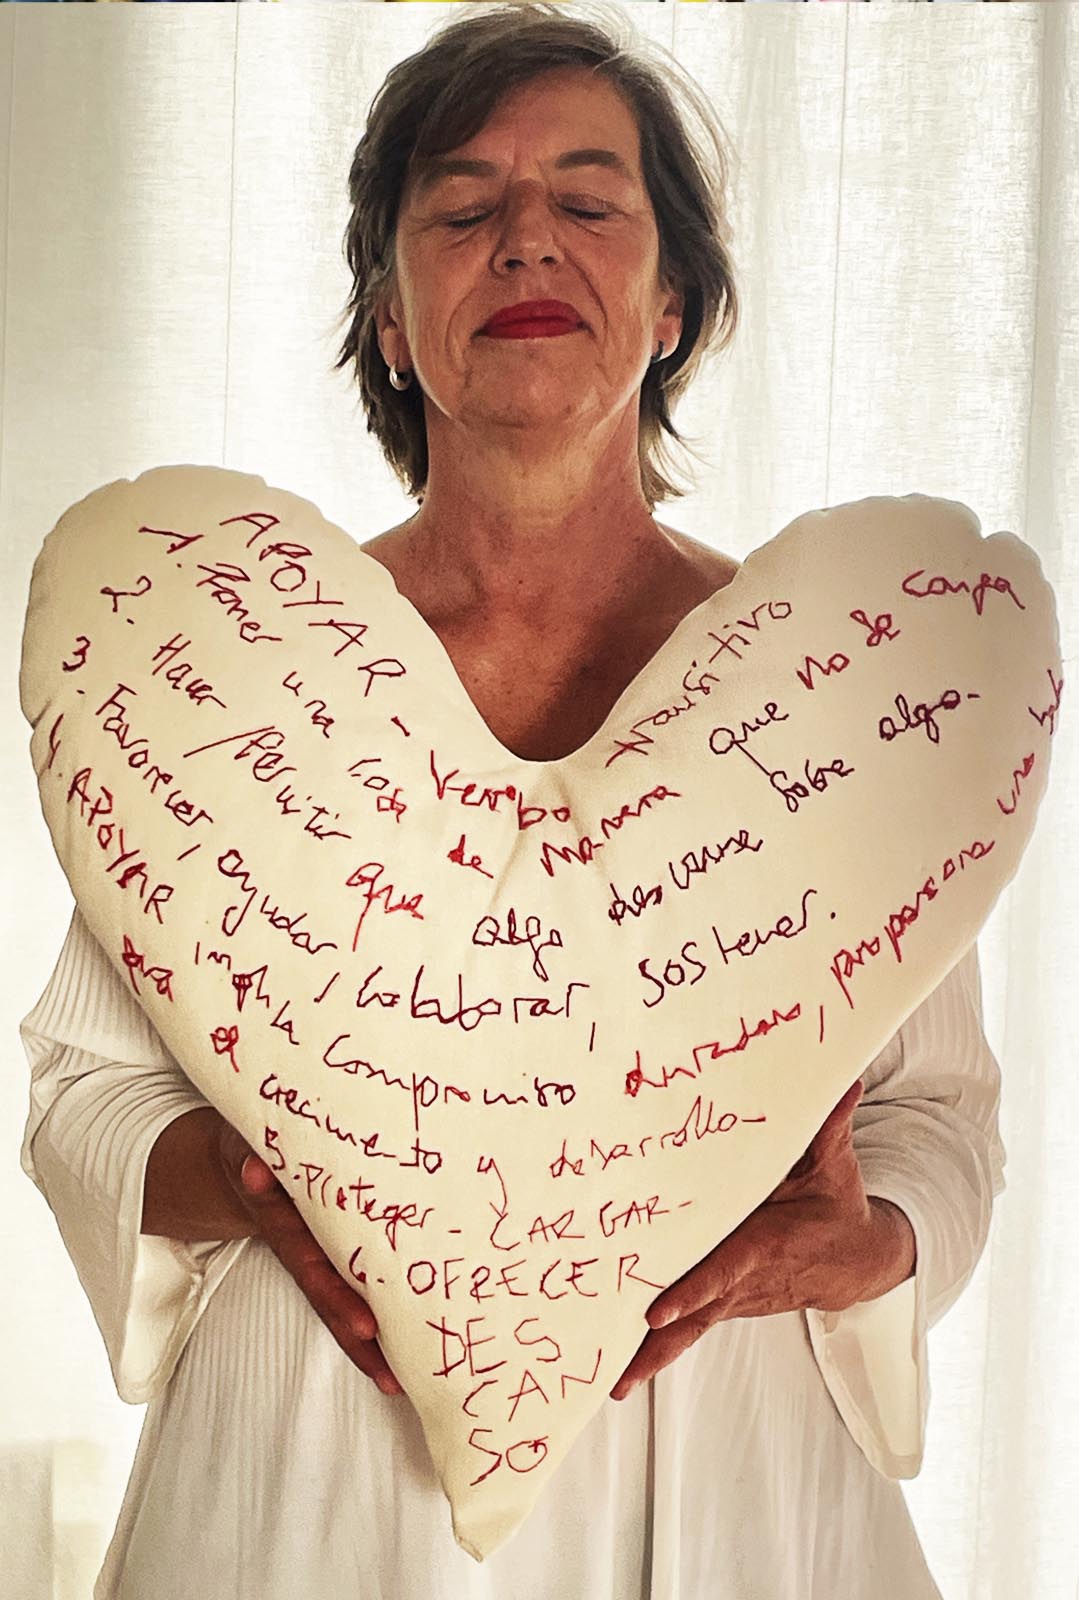 APOYAR - Verbo transitivo
1. Poner una cosa de manera que no se caiga
2. Hacer/Permitir que algo descanse sobre algo.
3. Favorecer, ayudar, colaborar, sostener.
4. APOYAR implica compromiso duradero, para una
el crecimiento y desarrollo-
5. Proteger - CARGAR-
6. OFRECER
DES
CAN
SO